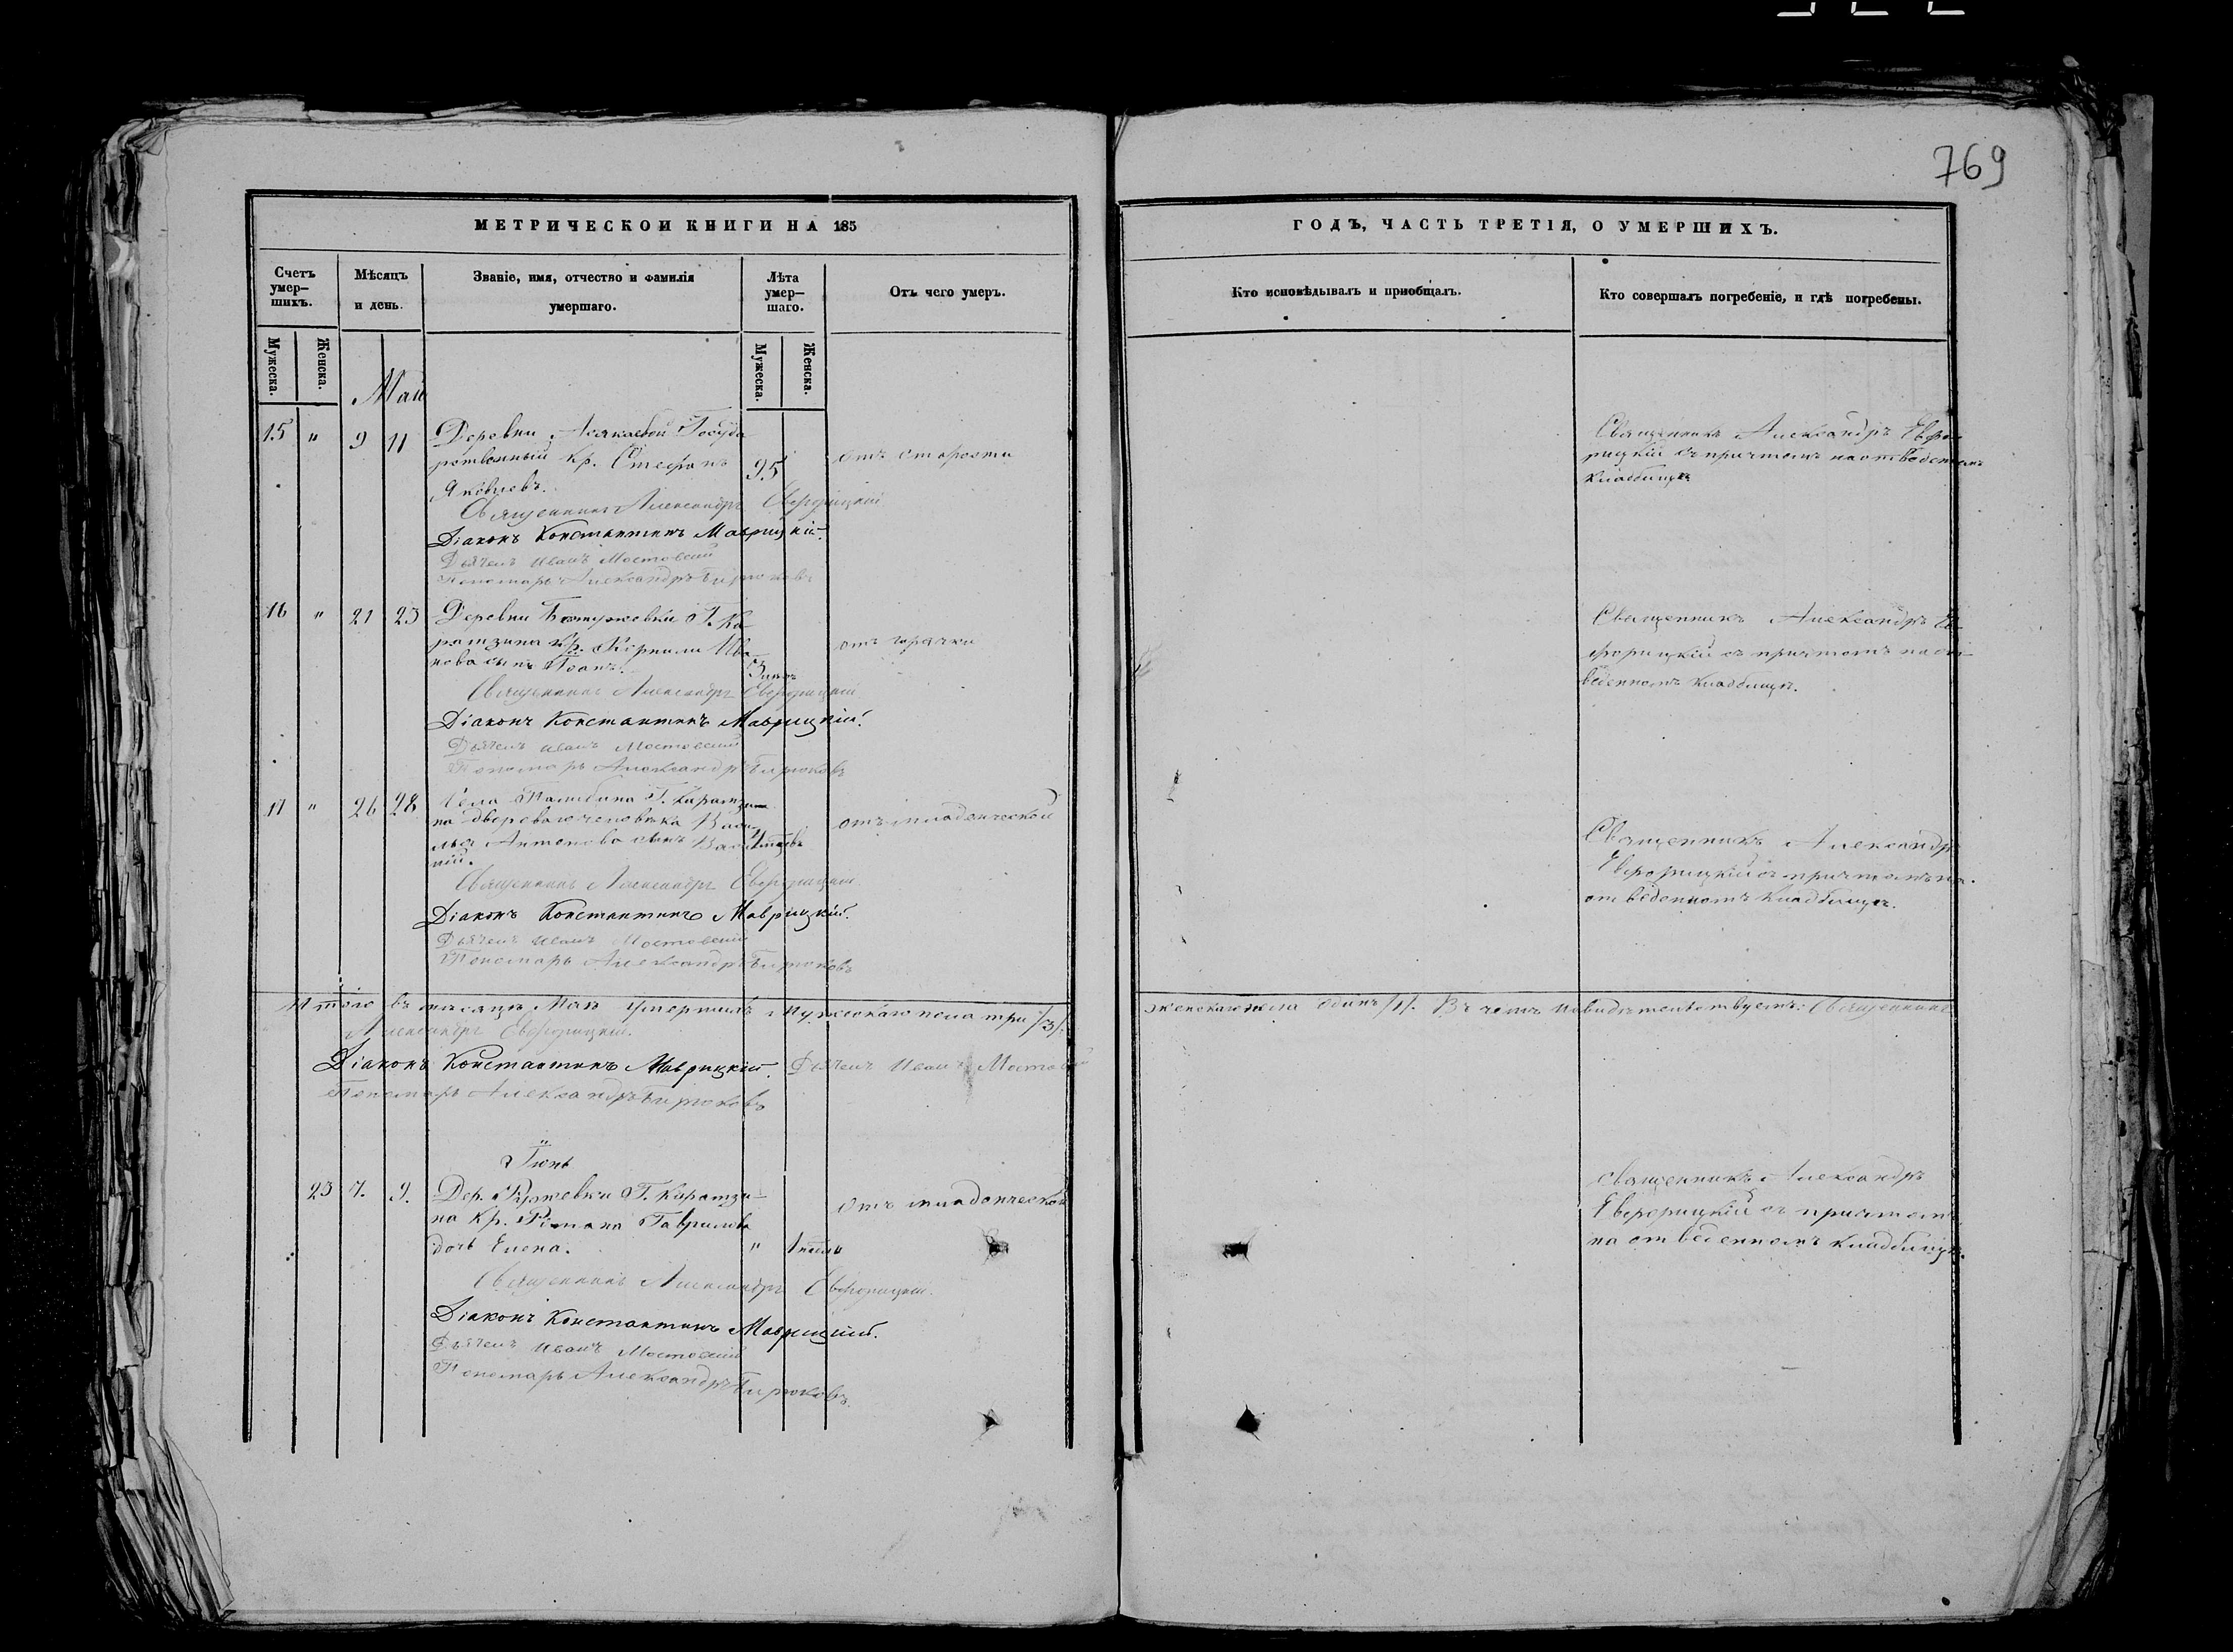 769
МЕТРИЧЕСКОЙ КНИГИ НА 185
ГОДЪ, ЧАСТЬ ТРЕТІЯ, О УМЕРШИХЪ.
Счетъ умер-
шихъ.
Мѣсяцъ
и день.
Званіе, имя, отчество и фамилія
умершаго.
Лѣта
умер-
шаго.
Отъ чего умеръ.
Кто исповѣдывалъ и пріобщалъ.
Кто совершалъ погребеніе, и гдѣ погребены.
Мужеска.
Женска.
Мужеска.
Женска.
Май
15 " 9 11
Деревни Госуда
рственный кр. Стефанъ
Яковлевъ.
95
отъ старости
Священникъ Александръ Евфо-
рицкій съ причтомъ на отведенномъ
кладбищѣ
Священникъ Александръ Евфорицкій
Діаконъ Константинъ Маврицкій.
Дьячекъ Иванъ Мостовскій
Пономарь Александръ Бирюковъ
16 " 21 23
Деревни Г. Ка
рамзина кр. Корнила Ива
нова сынъ Іоаннъ.
3
отъ горячки
Священникъ Александръ Ев-
форицкій съ причтомъ на от-
веденномъ кладбищѣ.
Священникъ Александръ Евфорицкій
Діаконъ Константинъ Маврицкій.
Дьячекъ Иванъ Мостовскій
Пономарь Александръ Бирюковъ
17 " 26 28
Села Г. Карамзи
на двороваго человѣка Васи
лья Антонова сынъ Васи
лій.
отъ младенческой
Священникъ Александръ
Евфорицкій съ причтомъ на
отведенномъ кладбищѣ.
Священникъ Александръ Евфорицкій
Діаконъ Константинъ Маврицкій.
Дьячекъ Иванъ Мостовскій
Пономарь Александръ Бирюковъ
Итого въ мѣсяцѣ Маѣ умершихъ мужескаго пола три /3/.
женскаго пола одинъ /1/. Въ чемъ и свидѣтельствуемъ: Священникъ
Александръ Евфорицкій.
Діаконъ Константинъ Маврицкій. Дьячекъ Иванъ Мостовскій
Пономарь Александръ Бирюковъ
Іюнь
23 7. 9.
Дер. Г. Карамзи-
на кр. Романа Гаврилова
дочь Елена.
" 1
отъ младенческой
Священникъ Александръ
Евфорицкій съ причтомъ
на отведенномъ кладбищѣ.
Священникъ Александръ Евфорицкій.
Діаконъ Константинъ Маврицкій.
Дьячекъ Иванъ Мостовскій
Пономарь Александръ Бирюковъ.